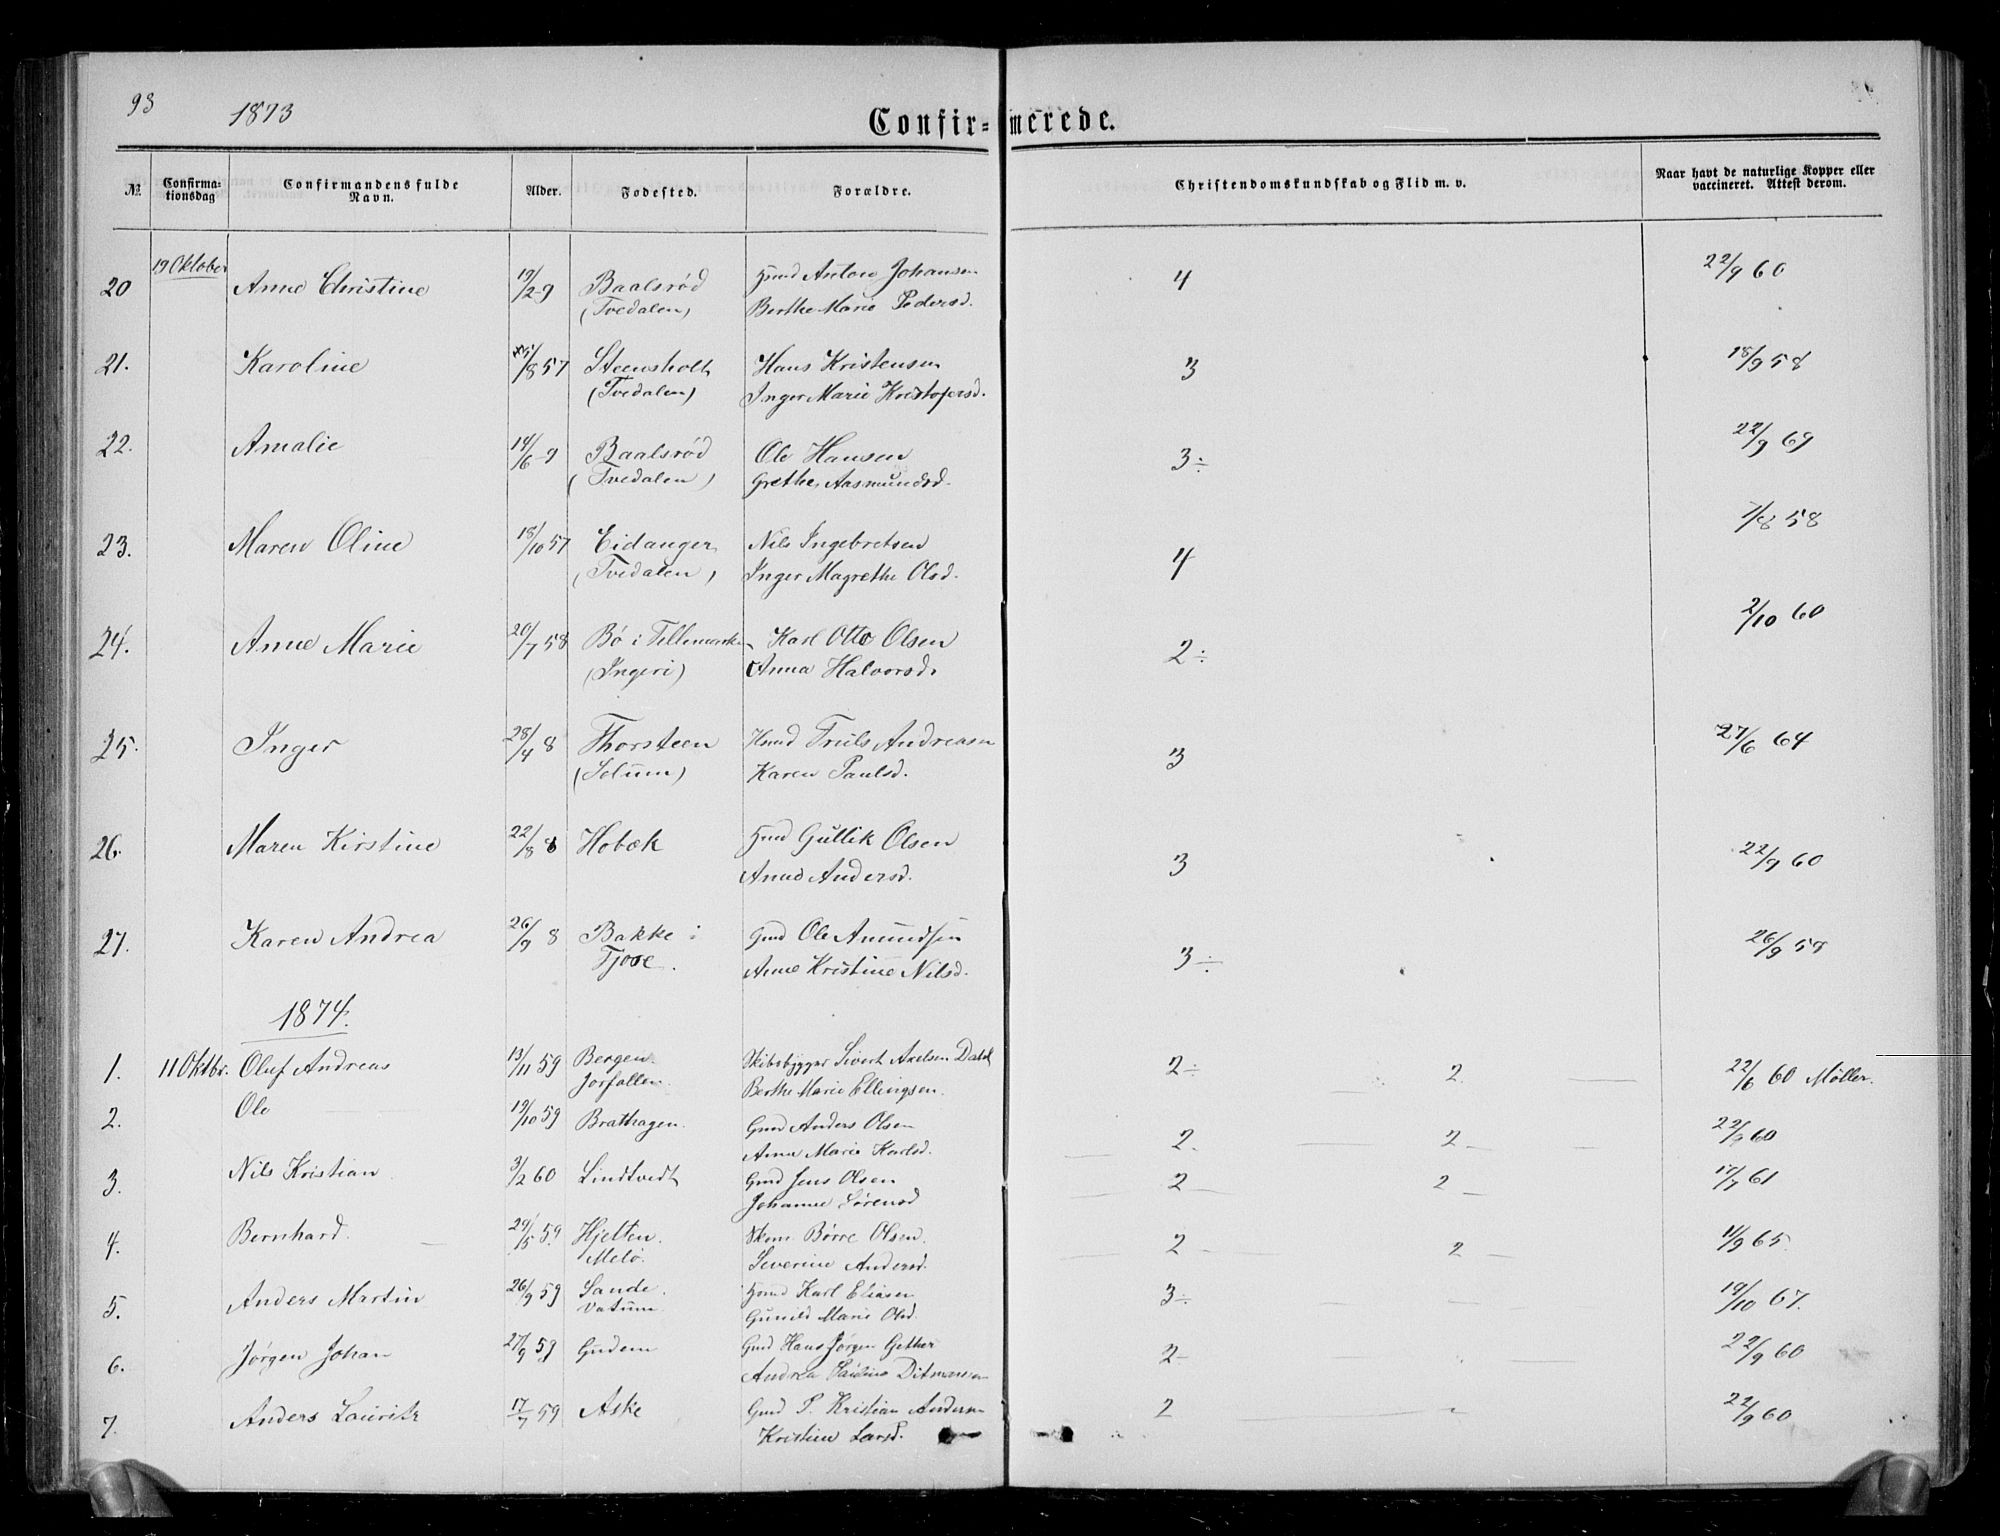 93
1873
Confir=merede.
№ Confirma-tionsdag Confirmandens fulde Navn. Alder. Fødested. Forældre. Christendomskundskab og Flid m. v. Naar havt de naturlige Kopper eller vaccineret. Attest derom.
19 Oktober
20 Anne Christine 19/2-9 Baalsrød Hmd Anton Johansen 4 22/9 60
(Tvedalen) Berthe Marie Pedersd.
21. Karoline /8 57 Steensholt Hans Kristensen 3 18/9 58
(Tvedalen) Inger Marie Kristofersd.
22. Amalie 14/6-9 Baalsrød Ole Hansen 3÷ 22/9 69
(Tvedalen) Grethe Aasmundsd.
23. Maren Oline 18/10 57 Eidanger Nils Ingebretsen 4 7/8 58
(Tvedalen) Inger Magrethe Olsd.
24. Anne Marie 20/7 58 Bø i Tellemarken Karl Otto Olsen 2÷ 2/10 60
(Ingeri) Anna Halvorsd.
25. Inger 28/4 8 Thorsteen Hmd Truls Andreasen 3 27/6 64
(Solum) Karen Paulsd.
26. Maren Kirstine 22/8 8 Hobæk Hmd Gullik Olsen 3 22/9 60
Anne Andersd.
27. Karen Andrea 26/9 8 Bakke i Gmd Ole Amundsen 3÷ 26/9 59
Tjose. Anne Kristine Nilsd.
1874.
1. 11 Oktbr. Oluf Andreas 13/11 59 Bergen. Skibsbygger Sivert Axelsen Dahl 2÷ 2 22/6 60 Møller.
Jorfallen. Berthe Marie Ellingsen.
2. Ole 19/10 59 Brathagen. Gmd Anders Olsen 2. 2 22/9 60
Anne Marie Karlsd.
3. Nils Kristian 3/2 60 Lindtvedt Gmd Jens Olsen 2 2 17/7 61
Johanne Sørensd
4. Bernhard. 29/5 59 Hjelten. Skom. Børre Olsen. 2 2 11/9 65.
Melø. Severine Andersd.
5. Anders Martin 26/9 59 Sande. Hmd Karl Eliasen 3÷ 19/10 67.
Vatum Gunild Marie Olsd.
6. Jørgen Johan 27/9 59 Gudem Gmd Hans Jørgen Gether 2 22/9 60
Andrea Pauline Ditmansen
7. Anders Lauritz 17/7 59 Aske Gmd P. Kristian Andersen 2 22/9 60
Kristine Larsd.